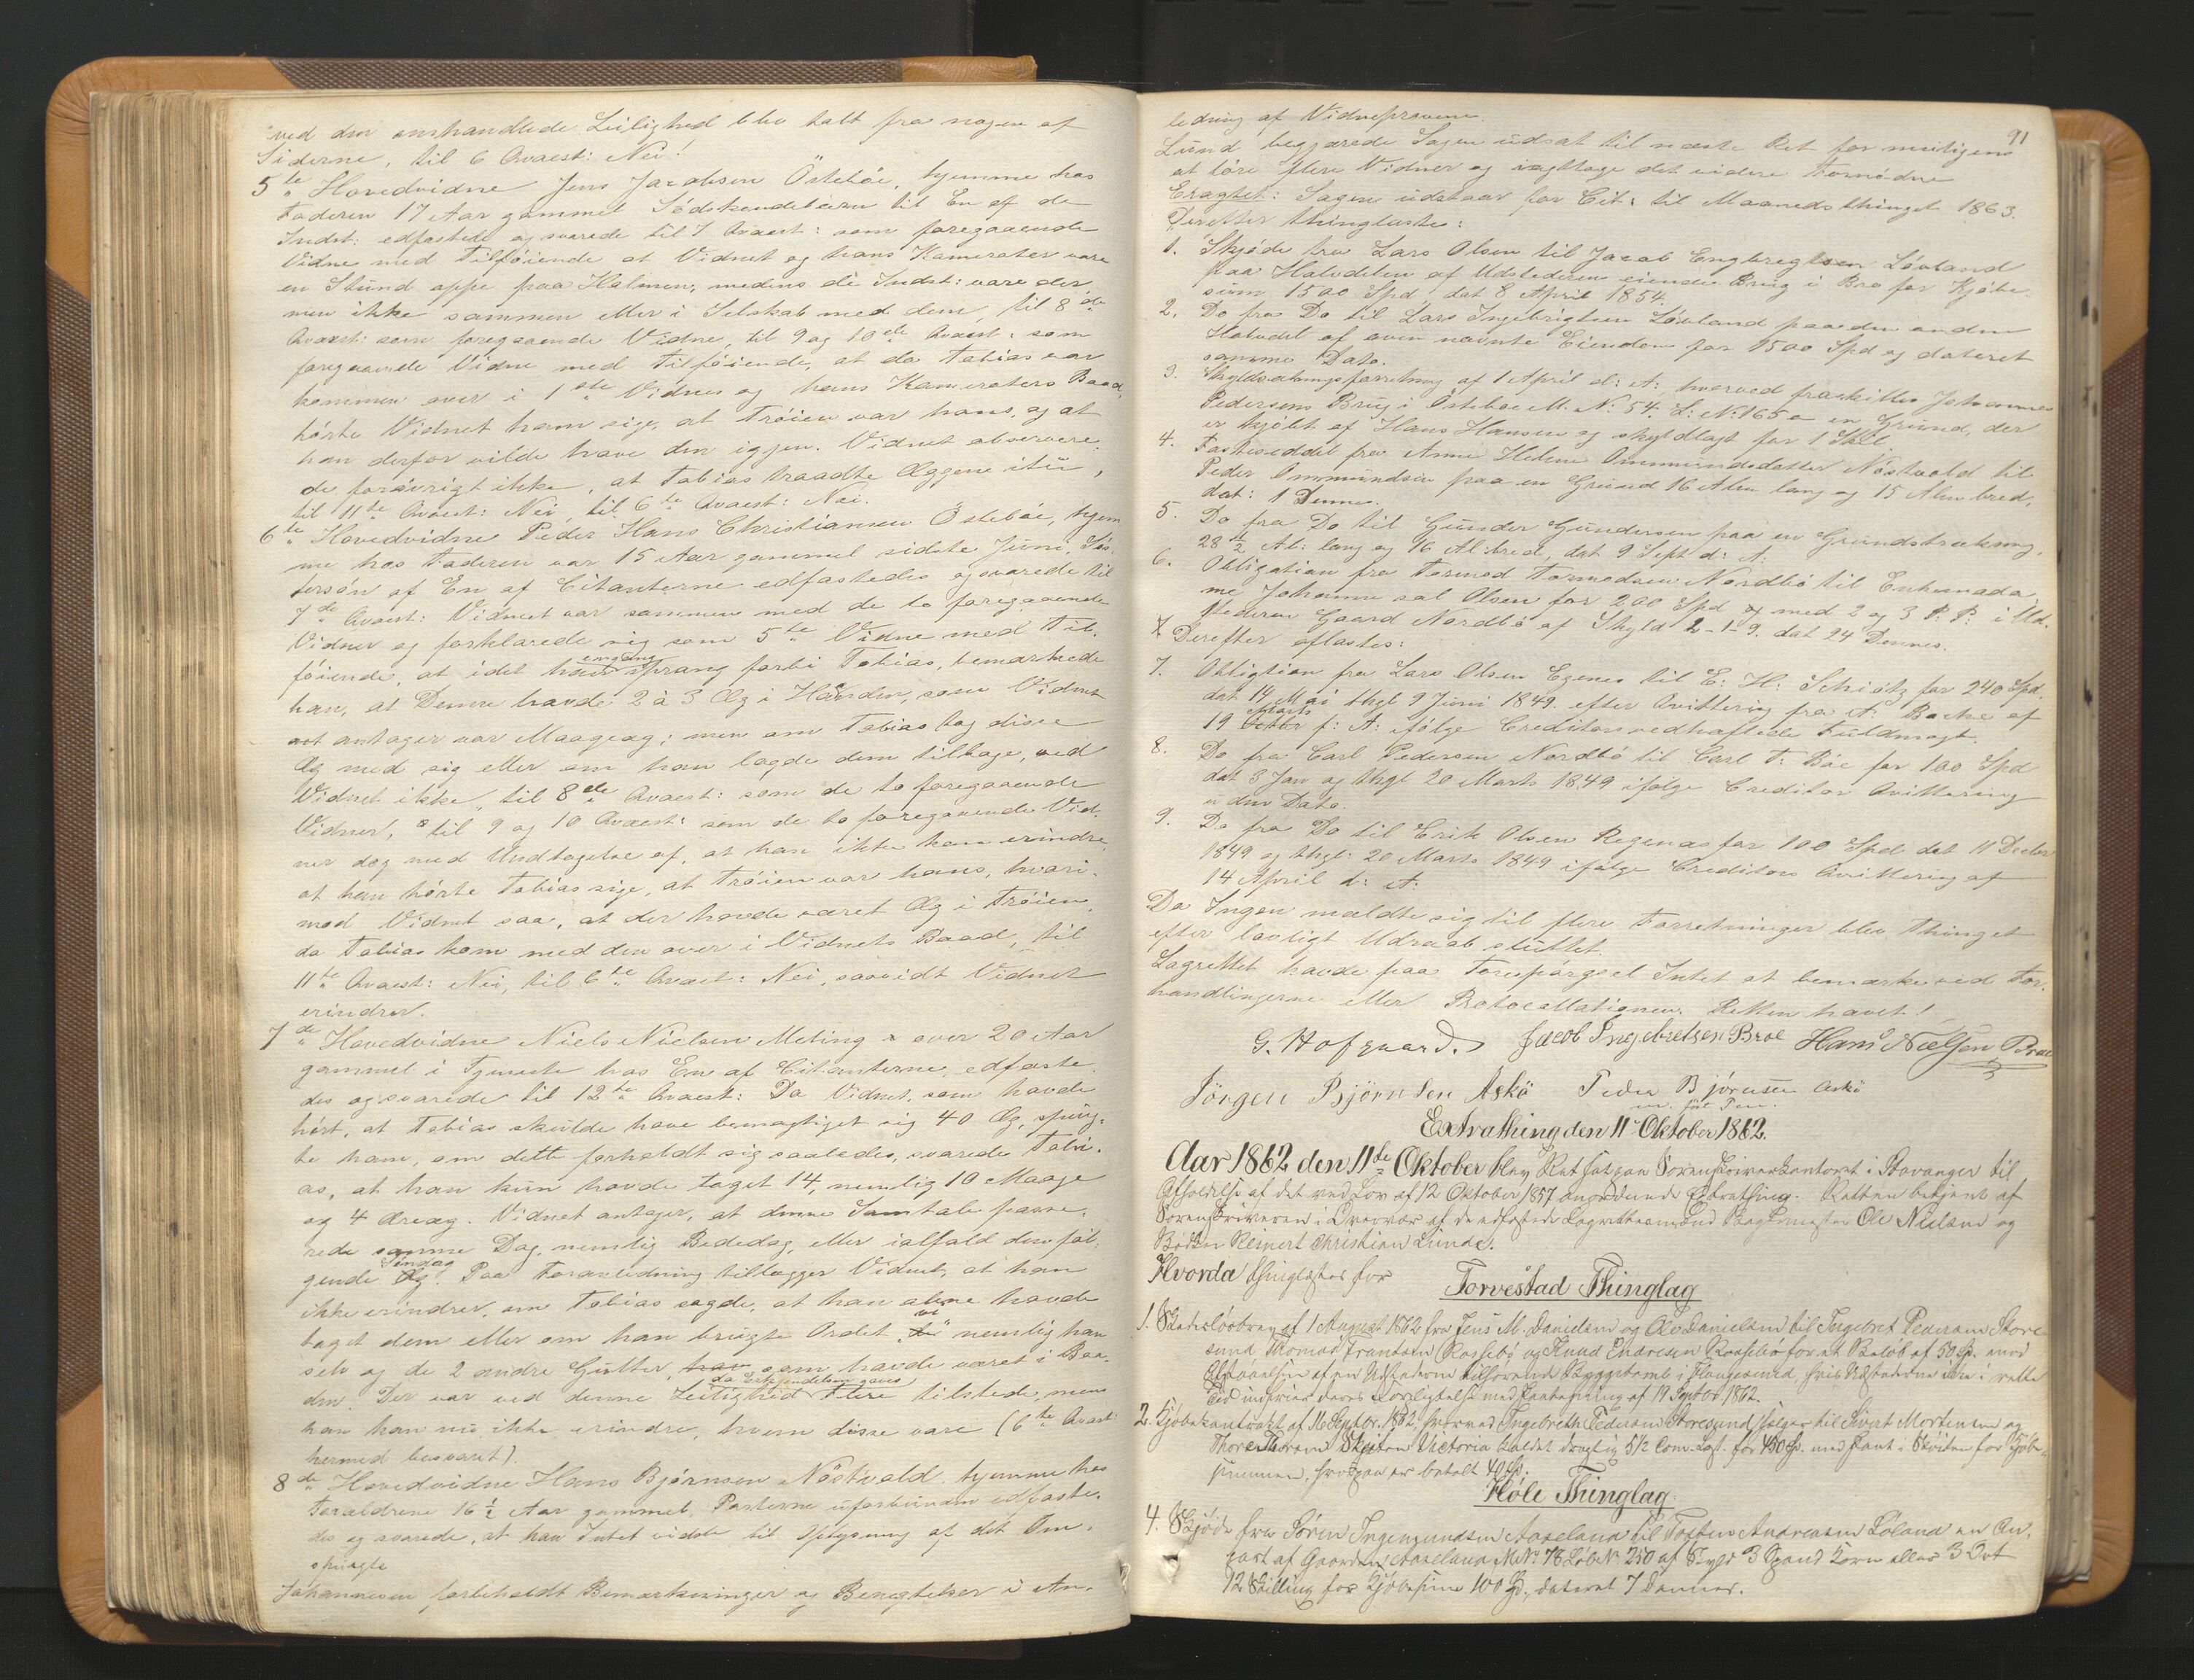 ved den omhandlede Leilighed blev talt fra nogen af
Siderne, til 6 Qvaest: Nei!
5te Hovedvidne Jens Jacobsen Östebøe, hjemme hos
Faderen 17 Aar gammel Södskendebarn til En af de
Indst: edfæstedes og svarede til 7 Qvaest: som foregaaende
Vidne med Tilföiende at Vidnet og hans Kamerater vare
en Stund oppe paa Holmen, medens de Indst: vare der,
men ikke sammen eller i Selskab med dem, til 8de
Qvaest: som foregaaende Vidne, til 9 og 10de Qvaest: som
foregaaende Vidne med Tilföiende, at da Tobias var
kommen over i 1ste Vidnes og hans Kameraters Baad,
hörte Vidnet ham sige, at Tröien var hans, og at
han derfor vilde have den igjen. Vidnet observere-
de forövrigt ikke, at Tobias traadte Æggene itu,
til 11te Qvaest: Nei, til 6te Qvaest: Nei.
6te Hovedvidne Peder Hans Christiansen Östebøe, hjem-
me hos Faderen var 15 Aar gammel sidste Juni, Sös-
tersön af En af Citanterne edfæstedes og svarede til
7de Qvaest: Vidnet var sammen med de to foregaaende
Vidner og forklarede sig som 5te Vidne med Til-
föiende, at idet han engang sprang forbi Tobias, bemærkede
han, at Denne havde 2 à 3 Æg i Haanden, som Vidnet
antager var Maageæg; men om Tobias tog disse
Æg med sig eller om han lagde dem tilbage, ved
Vidnet ikke, til 8de Qvaest: som de to foregaaende
Vidner, til 9 og 10 Qvaest: som de to foregaaende Vid-
ner dog med Undtagelse af, at han ikke kan erindre,
at han hörte Tobias sige, at Tröien var hans, hvori-
mod Vidnet saa, at der havde været Æg i Tröien,
da Tobias kom med den over i Vidnets Baad, til
11te Qvaest: Nei, til 6te Qvaest: Nei, saavidt Vidnet
erindrer.
7de Hovedvidne Niels Nielsen Meling over 20 Aar
gammel i Tjeneste hos En af Citanterne, edfæste-
des og svarede til 12te Qvaest: Da Vidnet, som havde
hört, at Tobias skulde have bemægtiget sig 40 Æg, spurg-
te ham, om dette forholdt sig saaledes, svarede Tobi-
as, at han kun havde taget 14, nemlig 10 Maage
og 4 Æreæg. Vidnet antager, at denne Samtale passe-
rede samme Dag, nemlig Bededag, eller ialfald den föl-
gende Söndag. Paa Foranledning tillægger Vidnet, at han
ikke erindrer, om Tobias sagde, at han alene havde
taget dem eller om han brugte Ordet "vi" nemlig han
selv og de 2 andre Gutter, som havde været i Baa-
den. Der var ved denne Leilighed Flere tilstede, men
han kan nu ikke erindre, hvem disse vare (6te Qvaest:
hermed besvaret).
8de Hovedvidne Hans Bjørnsen Nöstvold hjemme hos
Forældrene 16 1/2 Aar gammel, Parterne uforbunden edfæste-
des og svarede, at han Intet vidste til Oplysning af det Om-
spurgte
Johannesen forbeholdt Bemærkninger og Benægtelser i An-
91
ledning af Vidneprovene.
Lund begjærede Sagen udsat til næste Ret for muligens
at före flere Vidner og iagttage det videre Fornödne
Eragtet: Sagen udstaar for Cit: til Maanedsthinget 1863.
Derefter thinglæstes:
1. Skjöde fra Lars Olsen til Jacob Engbregtsen Lövland
paa Halvdelen af Udstederens eiende Brug i Bro for Kjöbe-
sum 1500 Spd, dat 8 April 1854.
2. Do fra Do til Lars Ingebrigtsen Lövland paa den anden
Halvdel af oven nævnte Eiendom for 1500 Spd og dateret
samme Dato.
3. Skyldsætningsforretning af 1 April d: A: hvorved fraskilles Johannes
Pedersens Brug i Östebøe M. N: 54. L: N: 165a en Grund, der
er kjöbt af Hans Hansen og skyldlagt for 1 Skil
4. Fæsteseddel fra Anne Helene Ommundsdatter Nöstvold til
Peder Ommundsen paa en Grund 16 Alen lang og 15 Alen bred,
dat: 1 Dennes.
5. Do fra Do til Gunder Gundersen paa en Grundstrækning,
28 1/2 Al: lang og 16 Al: bred, dat 9 Sept d: A:
6. Obligation fra Tormod Tormodsen Nordbö til Enkemada-
me Johanne sal Olsen for 200 Spd med 2 og 3 P. P: i Ud-
stederens Gaard Nordbö af Skyld 2-1-9. dat 24 Dennes.
Derefter aflæstes:
7. Obligtion fra Lars Olsen Egenes til E: H: Schiötz for 240 Spd.
dat 14 Mai thgl 9 Juni 1849. efter Qvittering fra A: Bache af
19 Marts f: A: ifölge Creditors vedhæftede Fuldmagt.
8. Do fra Carl Pedersen Nordbö til Carl T: Böe for 100 Spd
dat 3 Jan og thgl 20 Marts 1849 ifölge Creditors Qvittering
uden Dato.
9. Do fra Do til Erik Olsen Regenæs for 100 Spd dat 11 Decbr
1849 og thgl: 20 Marts 1849 ifölge Creditors Qvittering af
14 April d: A:
Da Ingen meldte sig til flere Forretninger blev Thinget
efter lovligt Udraab sluttet.
Lagrettet havde paa Forespörgsel Intet at bemærke ved For-
handlingerne eller Protocollationen. Retten hævet!
G. Hofgaard. Jacob Ingebretsen Broe Hans Nielsen Broe
Jörgen Björnsen Askö Peder Bjørnsen Askö
m. fört Pen.
Extrathing den 11te Oktober 1862.
Aar 1862 den 11te Oktober blev Ret sat paa Sorenskriverkontoret i Stavanger til
Afholdelse af det ved Lov af 12 Oktober 1857 anordnede Extrathing. Retten betjent af
Sorenskriveren i Overvær af de edfæstede Lagrettesmænd Bagermester Ole Nielsen og
Bödker Reinert Christian Lunde.
Hvorda thinglæstes for
Torvestad Thinglag
1. Skadeslösbrev af 1 August 1862 fra Jens M. Danielsen og Ole Danielsen til Ingebret Pedersen Store-
sund, Thomas Frandsen Rossebö og Knud Endresen Rossebö for et Beløb af 50 Sp. mod
Afstaaelsen af en Udstederne tilhörende Byggetomt i Haugesund, hvis Udstederne ikke i rette
Tid indfrier deres Forpligtelse med Paategning af 19 Septbr 1862.
2. Kjöbekontrakt af 16 Septbr. 1862 hvorved Ingebreth Pedersen Storesund sælger til Sivert Mortensen og
Thore Skjiten Victoria kaldet drægtig 5 1/2 Com.Lst. for 450 Sp. med Pant i Skøiten for Kjöbe-
summen, hvorpaa er betalt 40 Sp.
Höle Thinglag
4. Skjöde fra Sören Ingemundsen Aaseland til Torsten Andreasen Löland en An-
part af Gaarden Aaseland M.No 78 Löb No 250 af Skyld 3 Spand Korn eller 3 Ort
12 Skilling for Kjöbesum 100 Sp., dateret 7 Dennes.